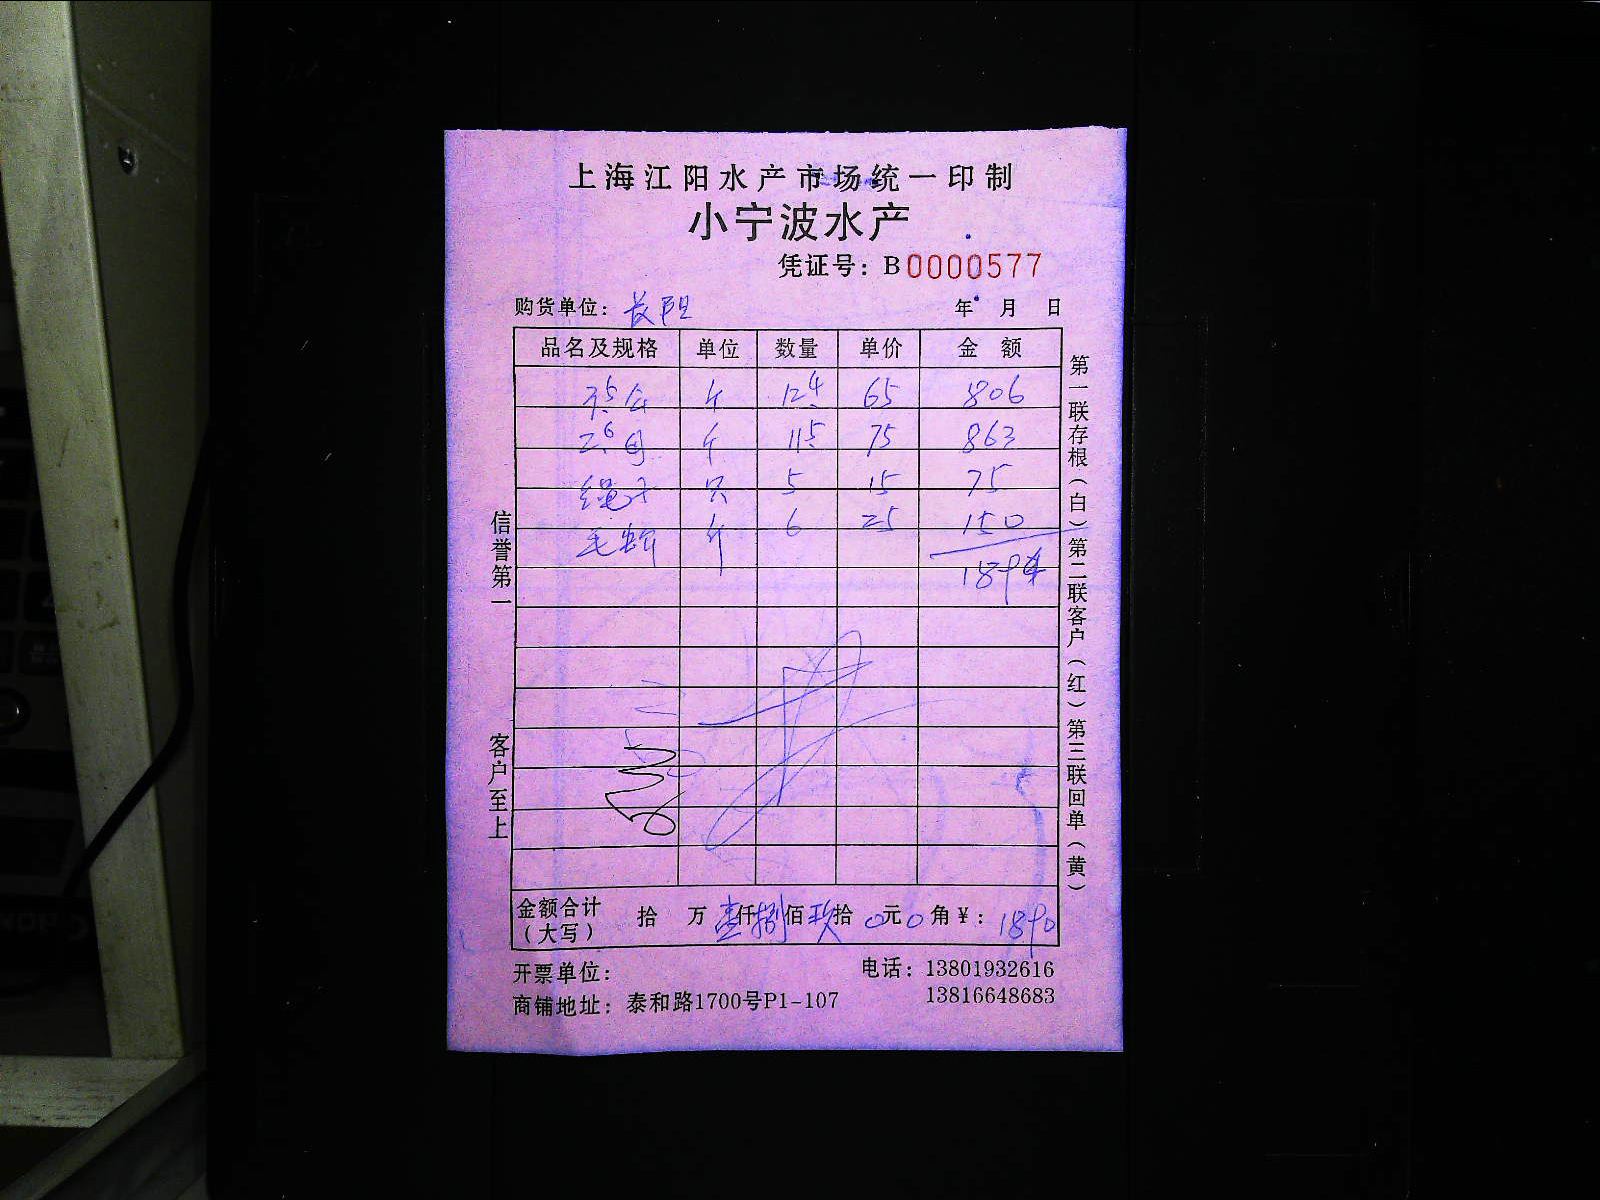 上海江阳水产市场统一印制
小宁波水产
凭证号：B0000577
购货单位：长阳 年 月 日
品名及规格 单位 数量 单价 金额
斤 12.4 65 806
斤 11.5 75 863
只 5 15 75
毛蚶 斤 6 25 150
1894
金额合计（大写） 拾 万 壹仟捌佰玖拾 0元 0角 ¥：1890
开票单位：
电话：13801932616
13816648683
商铺地址：泰和路1700号P1-107
信誉第一
客户至上
第一联存根（白）第二联客户（红）第三联回单（黄）